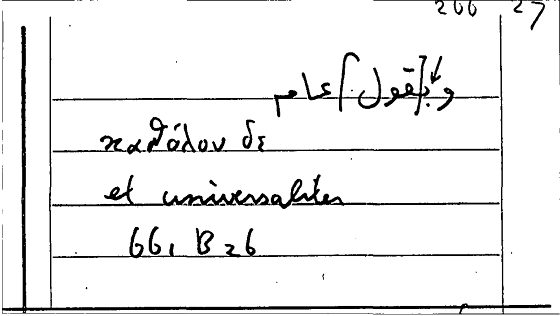 266 27
و[بقول] عام
καθόλου δὲ
et universaliter
66, B 26